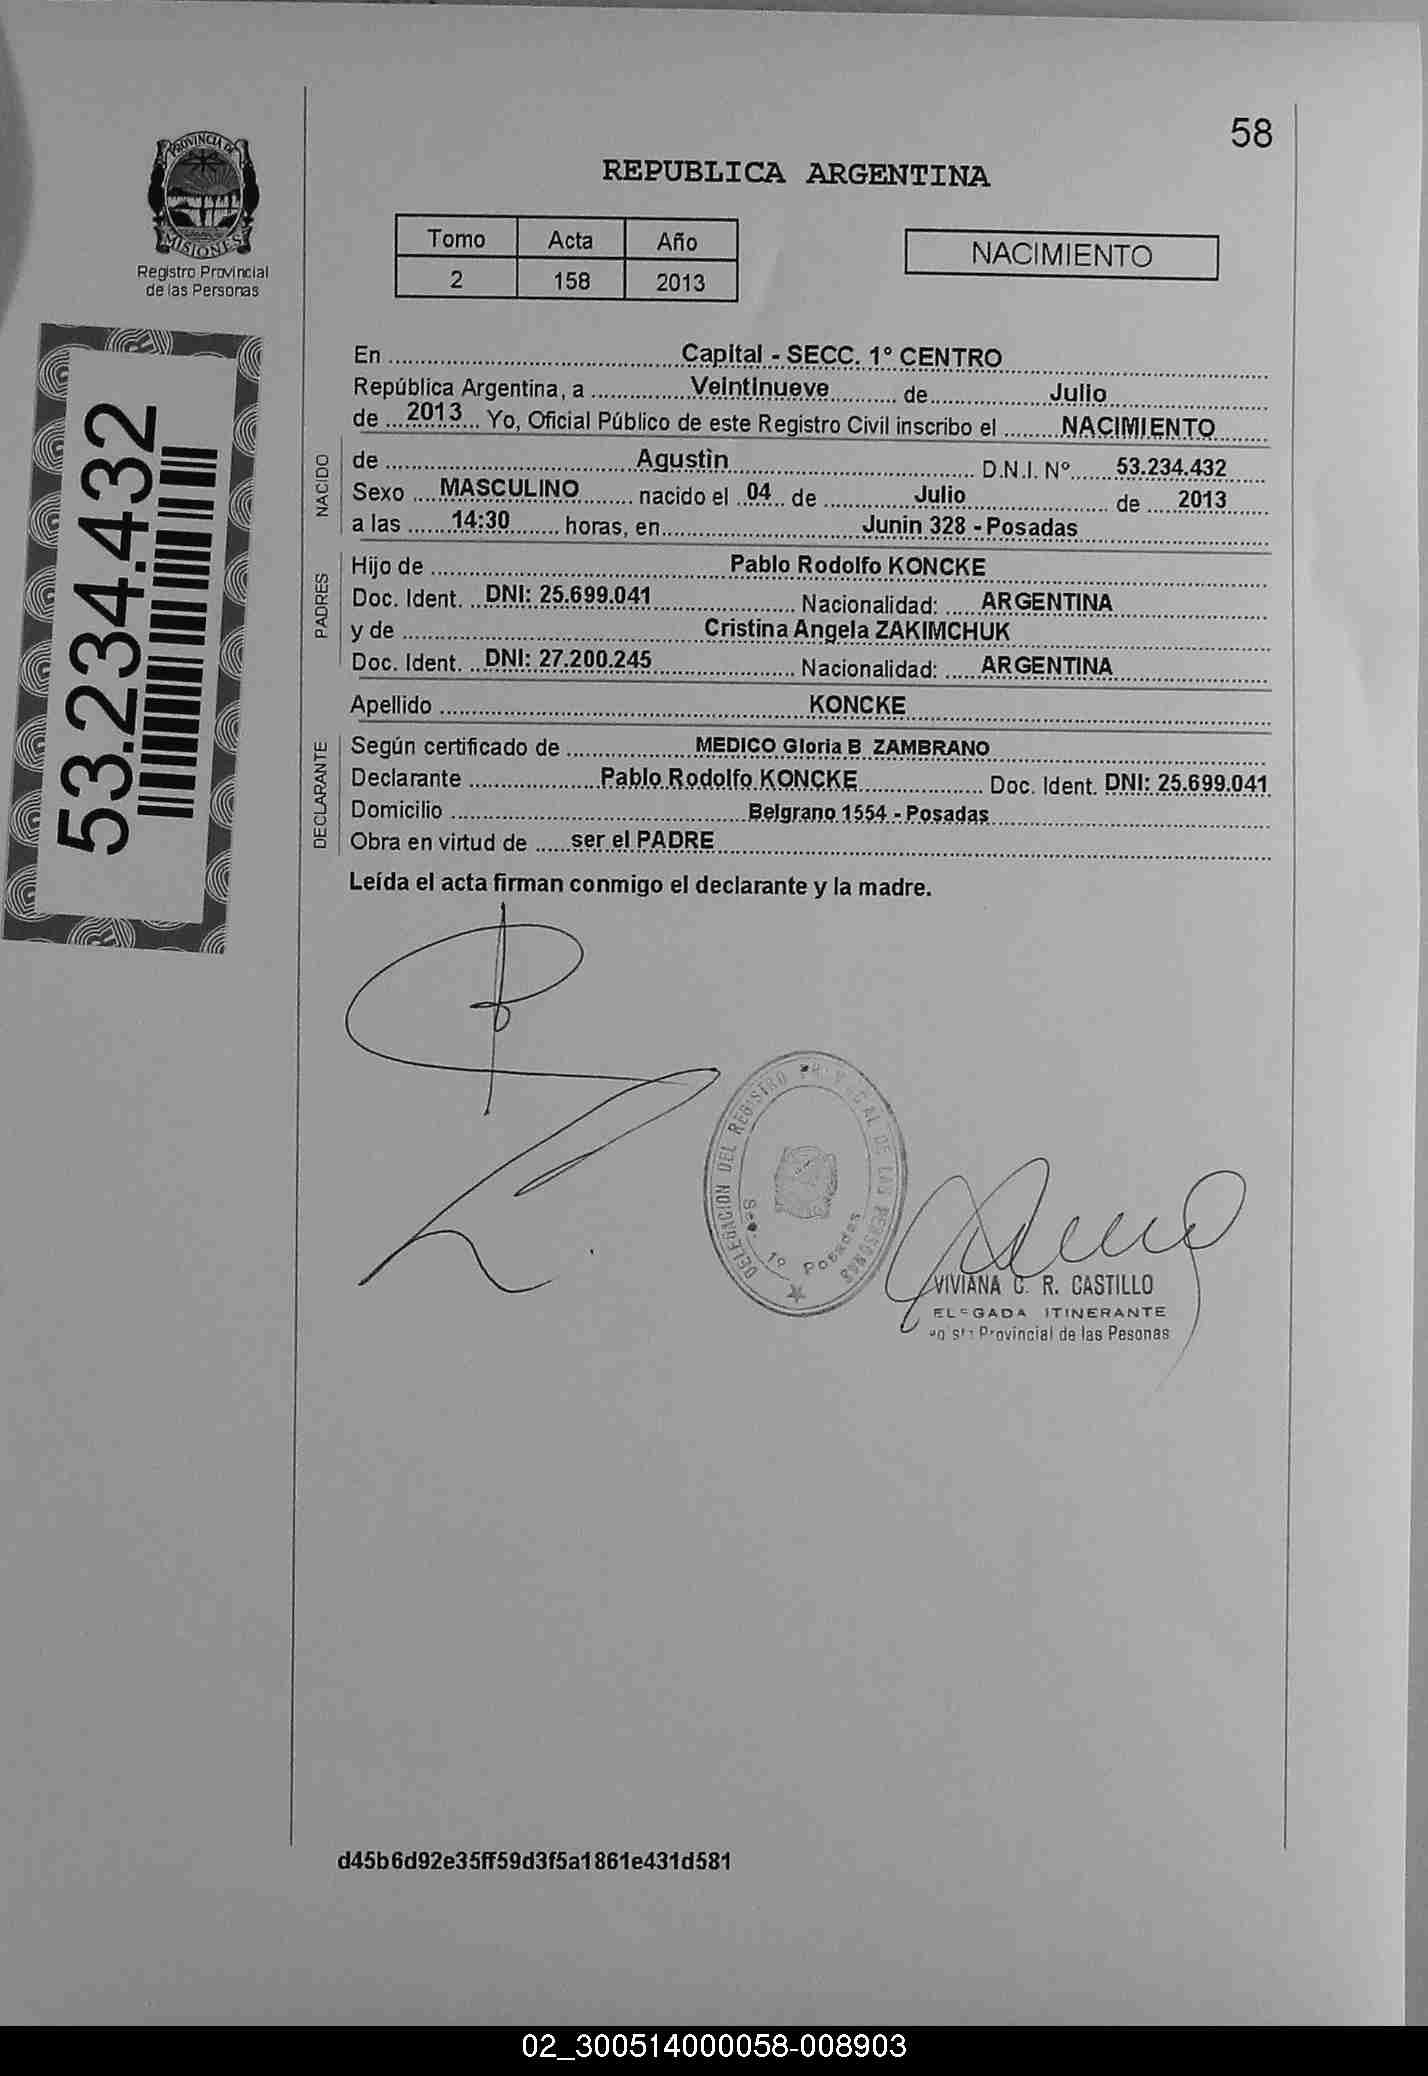 58
PROVINCIA DE
MISIONES
Registro Provincial
de las Personas
REPUBLICA ARGENTINA
Tomo Acta Año
2 158 2013
NACIMIENTO
53.234.432
En Capital - SECC. 1° CENTRO
República Argentina, a Veintinueve de Julio
de 2013 Yo, Oficial Público de este Registro Civil inscribo el NACIMIENTO
NACIDO
de Agustìn D.N.I. Nº 53.234.432
Sexo MASCULINO nacido el 04 de Julio de 2013
a las 14:30 horas, en Junin 328 - Posadas
PADRES
Hijo de Pablo Rodolfo KONCKE
Doc. Ident. DNI: 25.699.041 Nacionalidad: ARGENTINA
y de Cristina Angela ZAKIMCHUK
Doc. Ident. DNI: 27.200.245 Nacionalidad: ARGENTINA
Apellido KONCKE
DECLARANTE
Según certificado de MEDICO Gloria B ZAMBRANO
Declarante Pablo Rodolfo KONCKE Doc. Ident. DNI: 25.699.041
Domicilio Belgrano 1554 - Posadas
Obra en virtud de ser el PADRE
Leída el acta firman conmigo el declarante y la madre.
DELEGACION DEL REGISTRO PROVINCIAL DE LAS PERSONAS
Sec. 1º Posadas
VIVIANA C. R. CASTILLO
ELEGADA ITINERANTE
Provincial de las Pesonas
d45b6d92e35ff59d3f5a1861e431d581
02_300514000058-008903